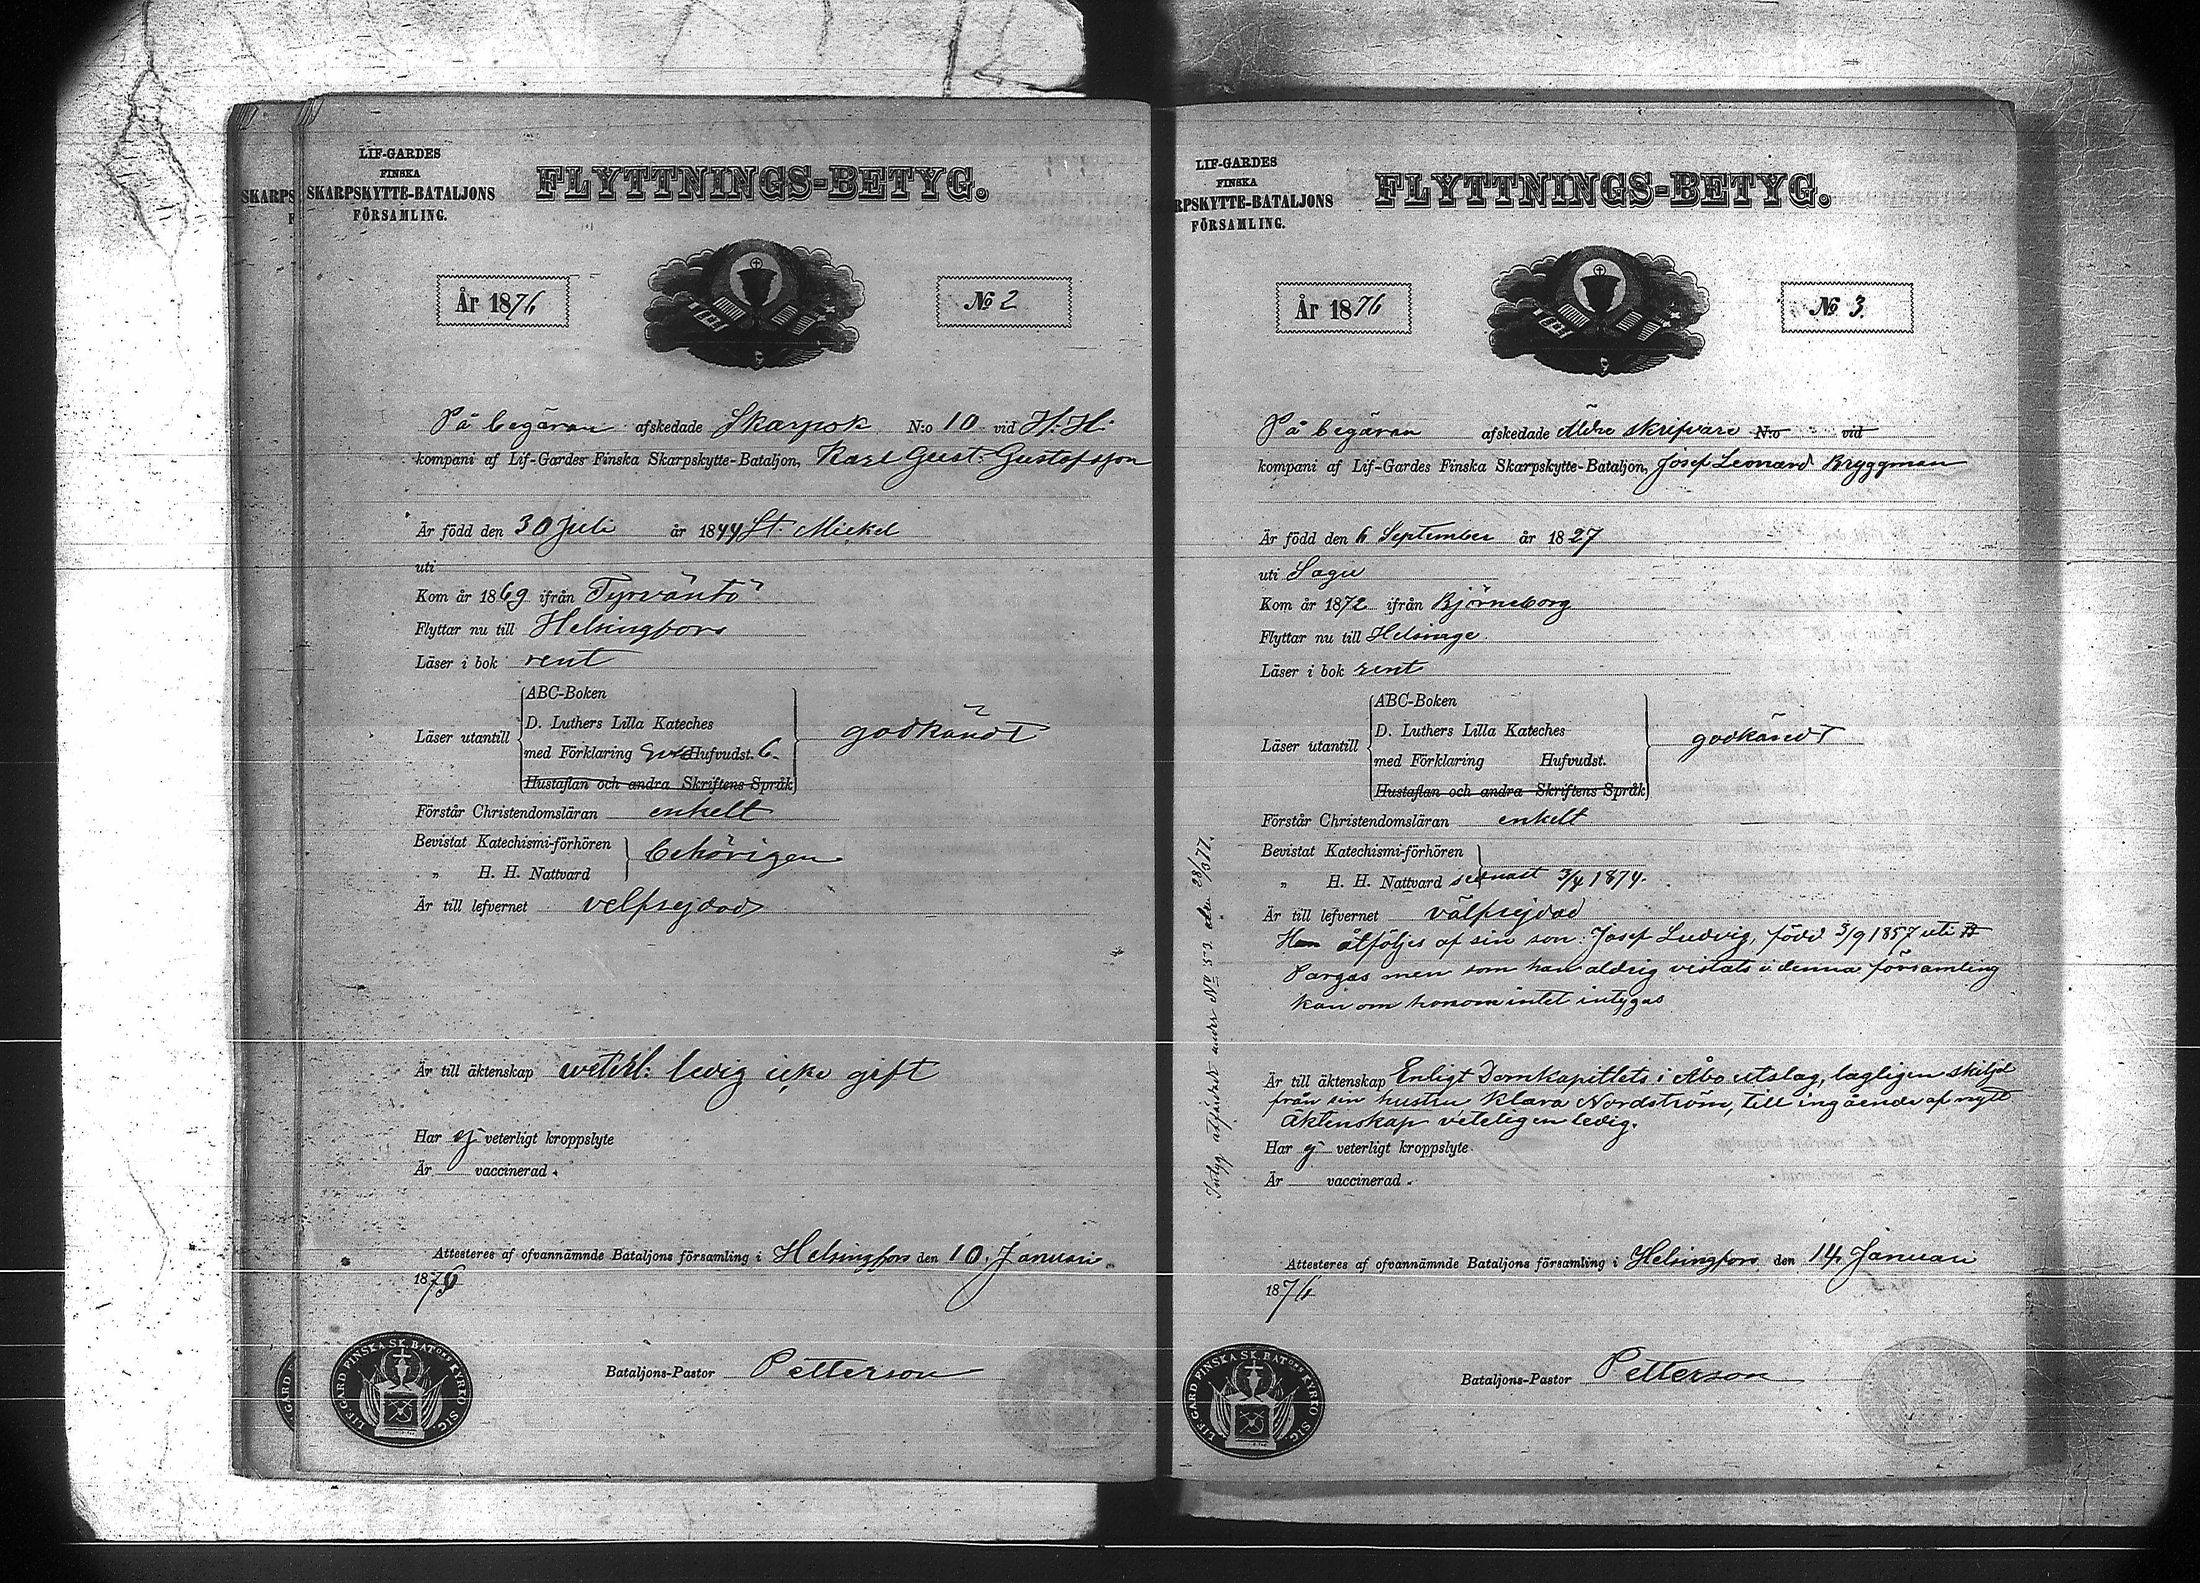 LIF-GARDES
FINSKA
SKARPSKYTTE-BATALJONS
FÖRSAMLING.
FLYTTNINGS-BETYG.
År 1876
No 2
På begäran afskedade Skarpsk N:o 10 vid H. H.
kompani af Lif-Gardes Finska Skarpskytte-Bataljon, Karl Gust. Gustafsson
Är född den 30 Juli år 1844 St. Mickel
uti
Kom år 1869 ifrån Tyrväntö
Flyttar nu till Helsingfors
Läser i bok rent
ABC-Boken
D. Luthers Lilla Kateches
Läser utantill godkändt
med Förklaring Hufvudst. 6.
Hustaflan och andra Skriftens Språk
Förstår Christendomsläran enkelt
Bevistat Katechismi-förhören behörigen
„ H. H. Nattvard
Är till lefvernet velfrejdad
Är till äktenskap veterl: ledig icke gift
Har ej veterligt kroppslyte
Är vaccinerad.
Attesteres af ofvannämnde Bataljons församling i Helsingfors den 10. Januari
1876
Bataljons-Pastor Petterson
LIF. GARD FINSKA SK. BAT:ONS KYRKO SIG.
LIF-GARDES
FINSKA
RPSKYTTE-BATALJONS
FÖRSAMLING.
FLYTTNINGS-BETYG.
År 1876
No 3.
På begäran afskedade Äldre skrifvare N:o vid
kompani af Lif-Gardes Finska Skarpskytte-Bataljon, Josef Leonard Bryggman
Är född den 6 September år 1827
uti Sagu
Kom år 1872 ifrån Björneborg
Flyttar nu till Helsinge
Läser i bok rent
ABC-Boken
D. Luthers Lilla Kateches
Läser utantill godkändt
med Förklaring Hufvudst.
Hustaflan och andra Skriftens Språk
Förstår Christendomsläran enkelt
Bevistat Katechismi-förhören
„ H. H. Nattvard sednast 3/4 1874.
Är till lefvernet välfrejdad
Han åtföljes af sin son: Josef Ludvig, född 3/9 1857 uti
Pargas men som han aldrig vistats i denna församling
kan om honom intet intygas
Är till äktenskap Enligt Domkapitlets i Åbo utslag, lagligen skiljd
från sin hustru Klara Nordström, till ingående af nytt
äktenskap veterligen ledig.
Har ej veterligt kroppslyte
Är vaccinerad.
Attesteres af ofvannämnde Bataljons församling i Helsingfors den 14 Januari
1876
Bataljons-Pastor Petterson
LIF. GARD FINSKA SK. BAT:ONS KYRKO SIG.
Intyg affärdadt under No 53 den 28/3 77.